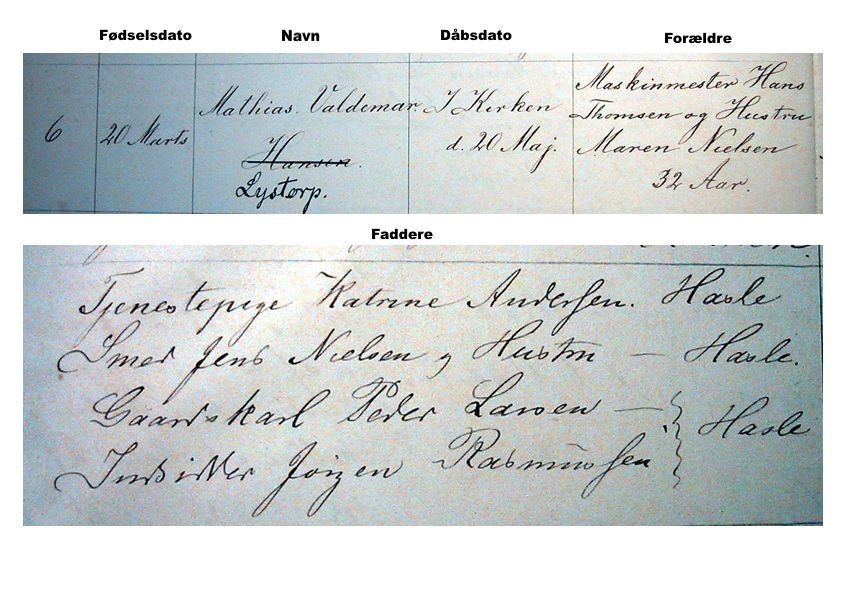 Fødselsdato Navn Dåbsdato Forældre
6 20 Marts Mathias. Valdemar. Hansen. Lystorp. I Kirken d. 20 Maj. Maskinmester Hans
Thomsen og Hustru
Maren Nielsen
32 Aar.
Faddere
Tjenestepige Katrine Andersen. Hasle
Smed Jens Nielsen og Hustru — Hasle.
Gaardskarl Peder Larsen —
Indsidder Jörgen Rasmussen Hasle